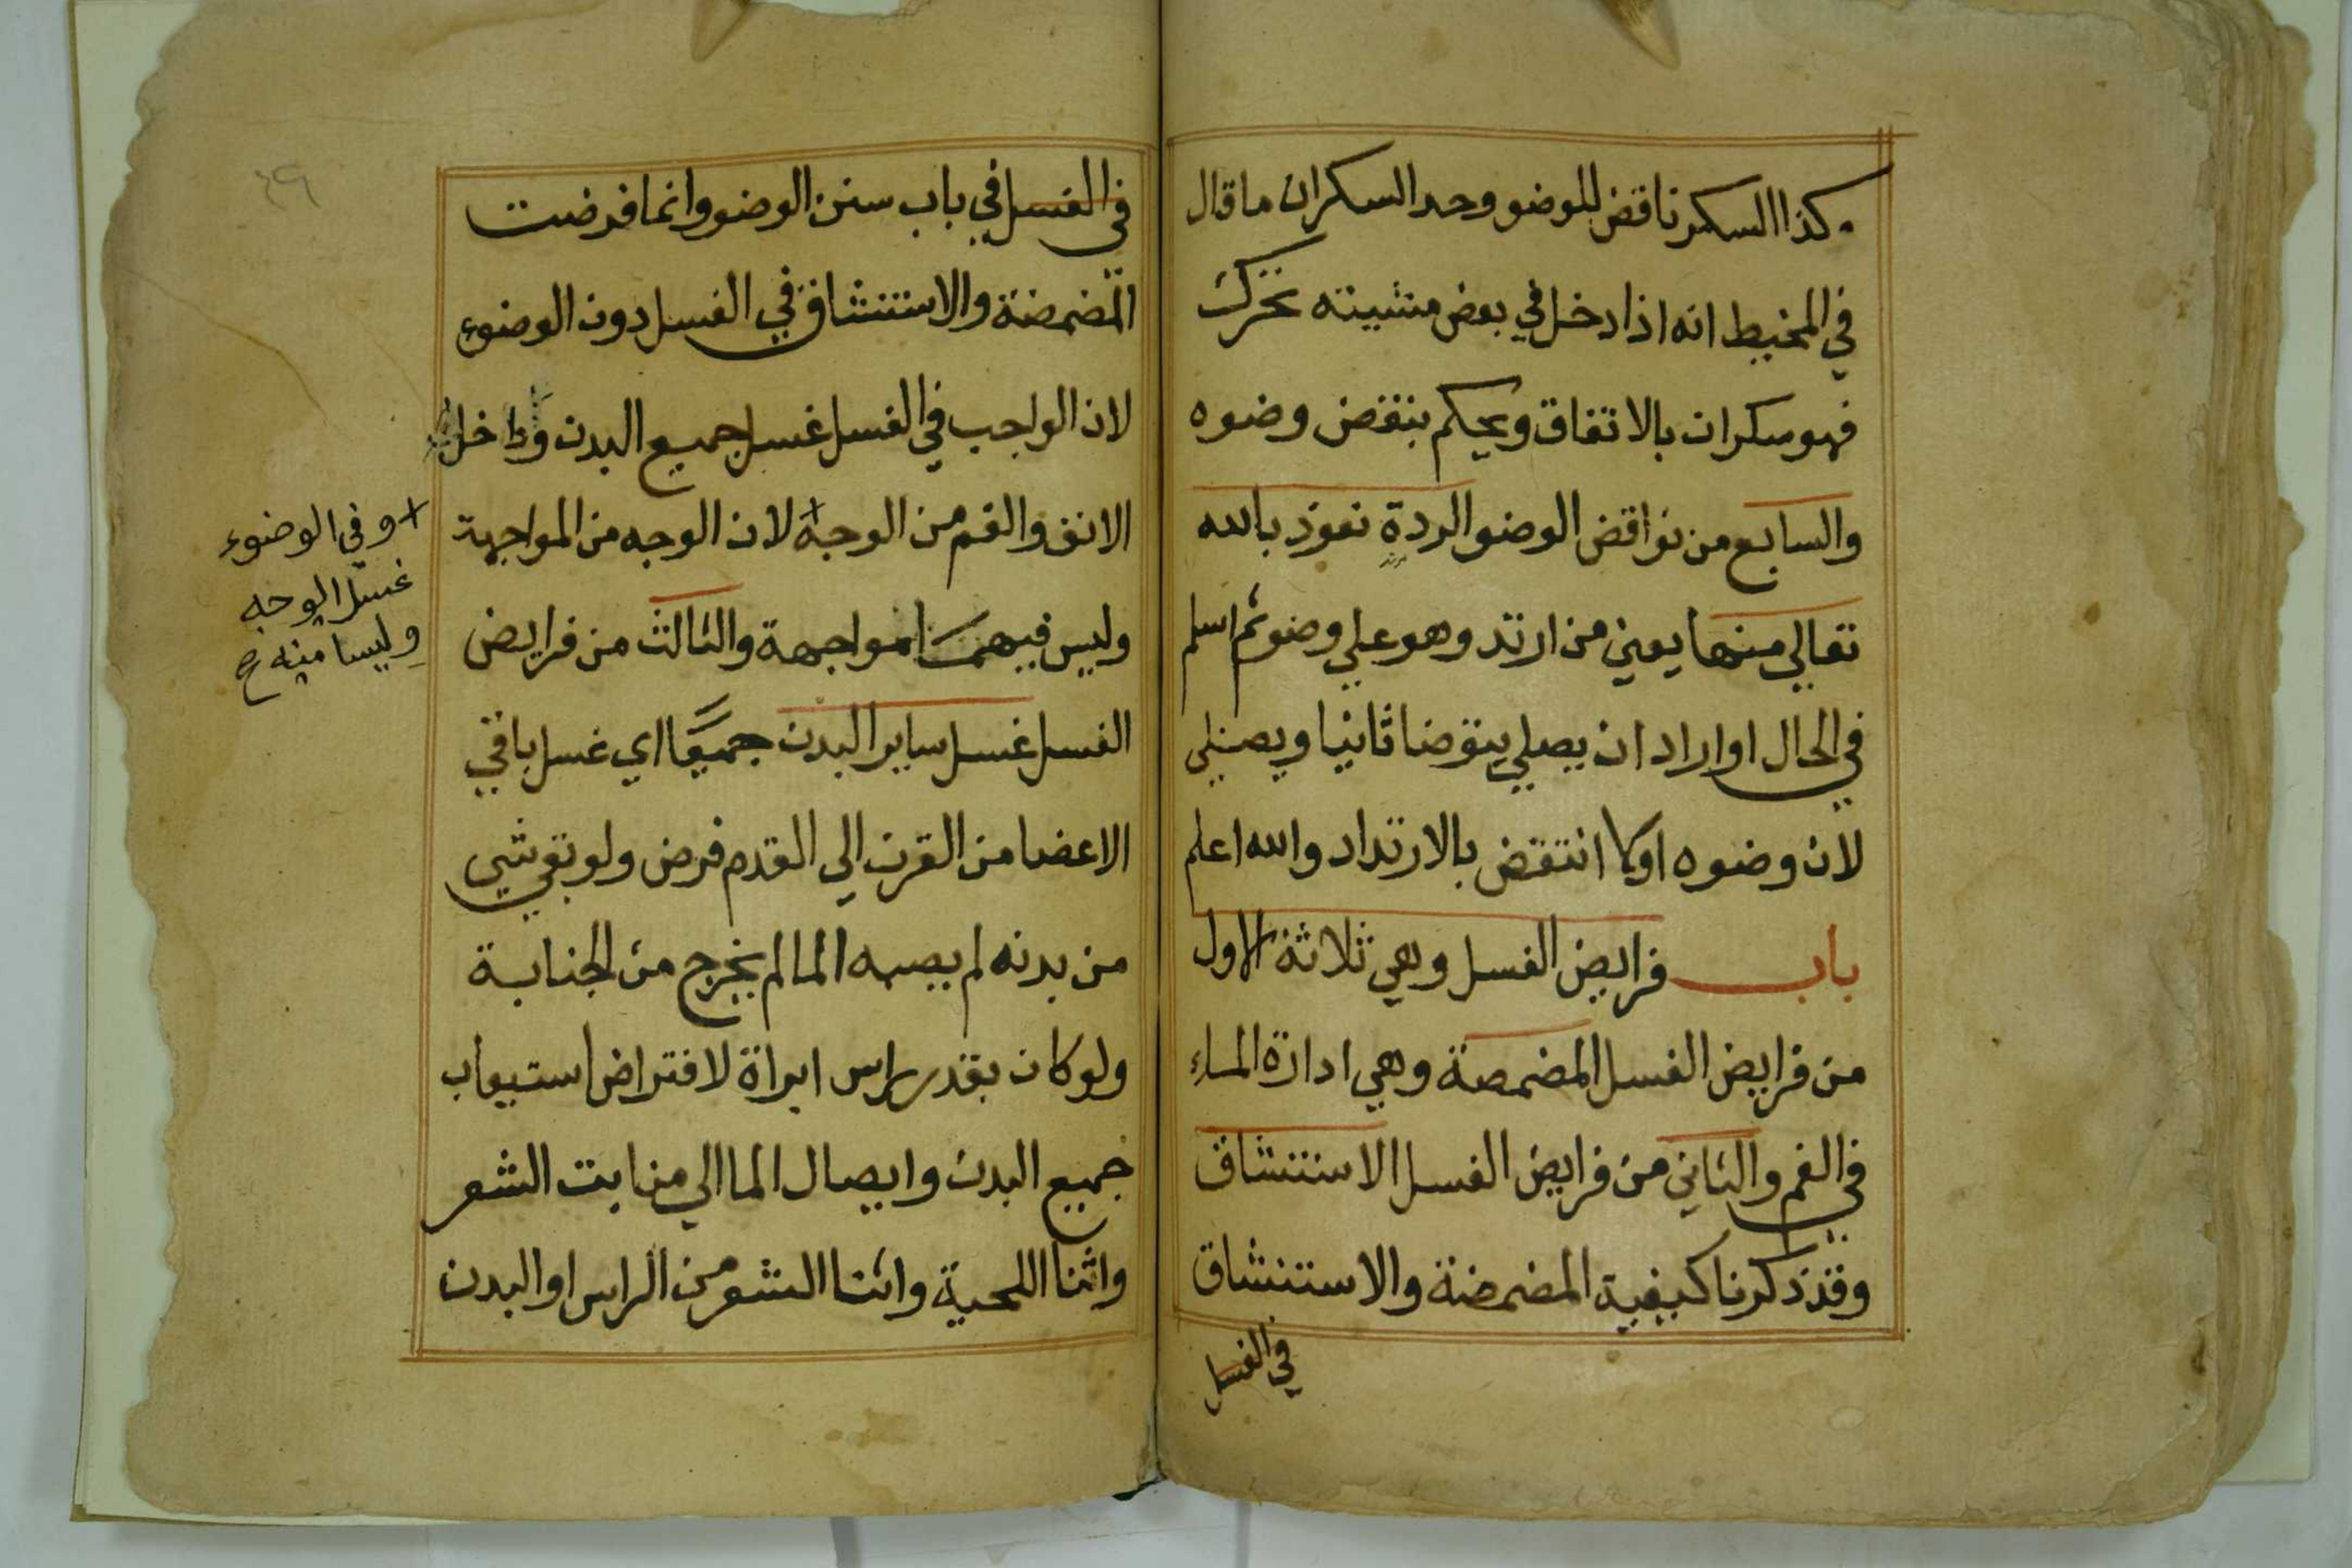 وكذا السكر ناقض للوضو وحد السكران ما قال
في المحيط انه اذا دخل في بعض مشيته تحرك
فهو سكران بالاتفاق ويحكم بنقض وضوه
والسابع من نواقض الوضو الردة نعوذ بالله
تعالي منها يعني من ارتد وهو علي وضو ثم اسلم
في الحال او اراد ان يصلي يتوضا ثانيا ويصلي
لان وضوه اولا انتقض بالارتداد والله اعلم
باب فرايض الغسل وهي ثلاثة الاول
من فرايض الغسل المضمضة وهي ادارة الماء
في الفم والثاني من فرايض الغسل الاستنشاق
وقد ذكرنا كيفية المضمضة والاستنشاق
في الغسل
٤٩
في الغسل في باب سنن الوضو وانما فرضت
المضمضة والاستنشاق في الغسل دون الوضوء
لان الواجب في الغسل غسل جميع البدن وداخل
الانف والفم من الوجه لان الوجه من المواجهة
وليس فيهما مواجهة والثالث من فرايض
الغسل غسل ساير البدن جميعًا اي غسل باقي
الاعضا من القرن الي القدم فرض ولو بقي شي
من بدنه لم يصبه الما لم يخرج من الجنابة
ولو كان بقدر راس ابراة لافتراض استيعاب
جميع البدن وايصال الما الي منابت الشعر
واثنا اللحية واثنا الشعر من الراس او البدن
وفي الوضوء
غسل الوجه
وليسا منه صح